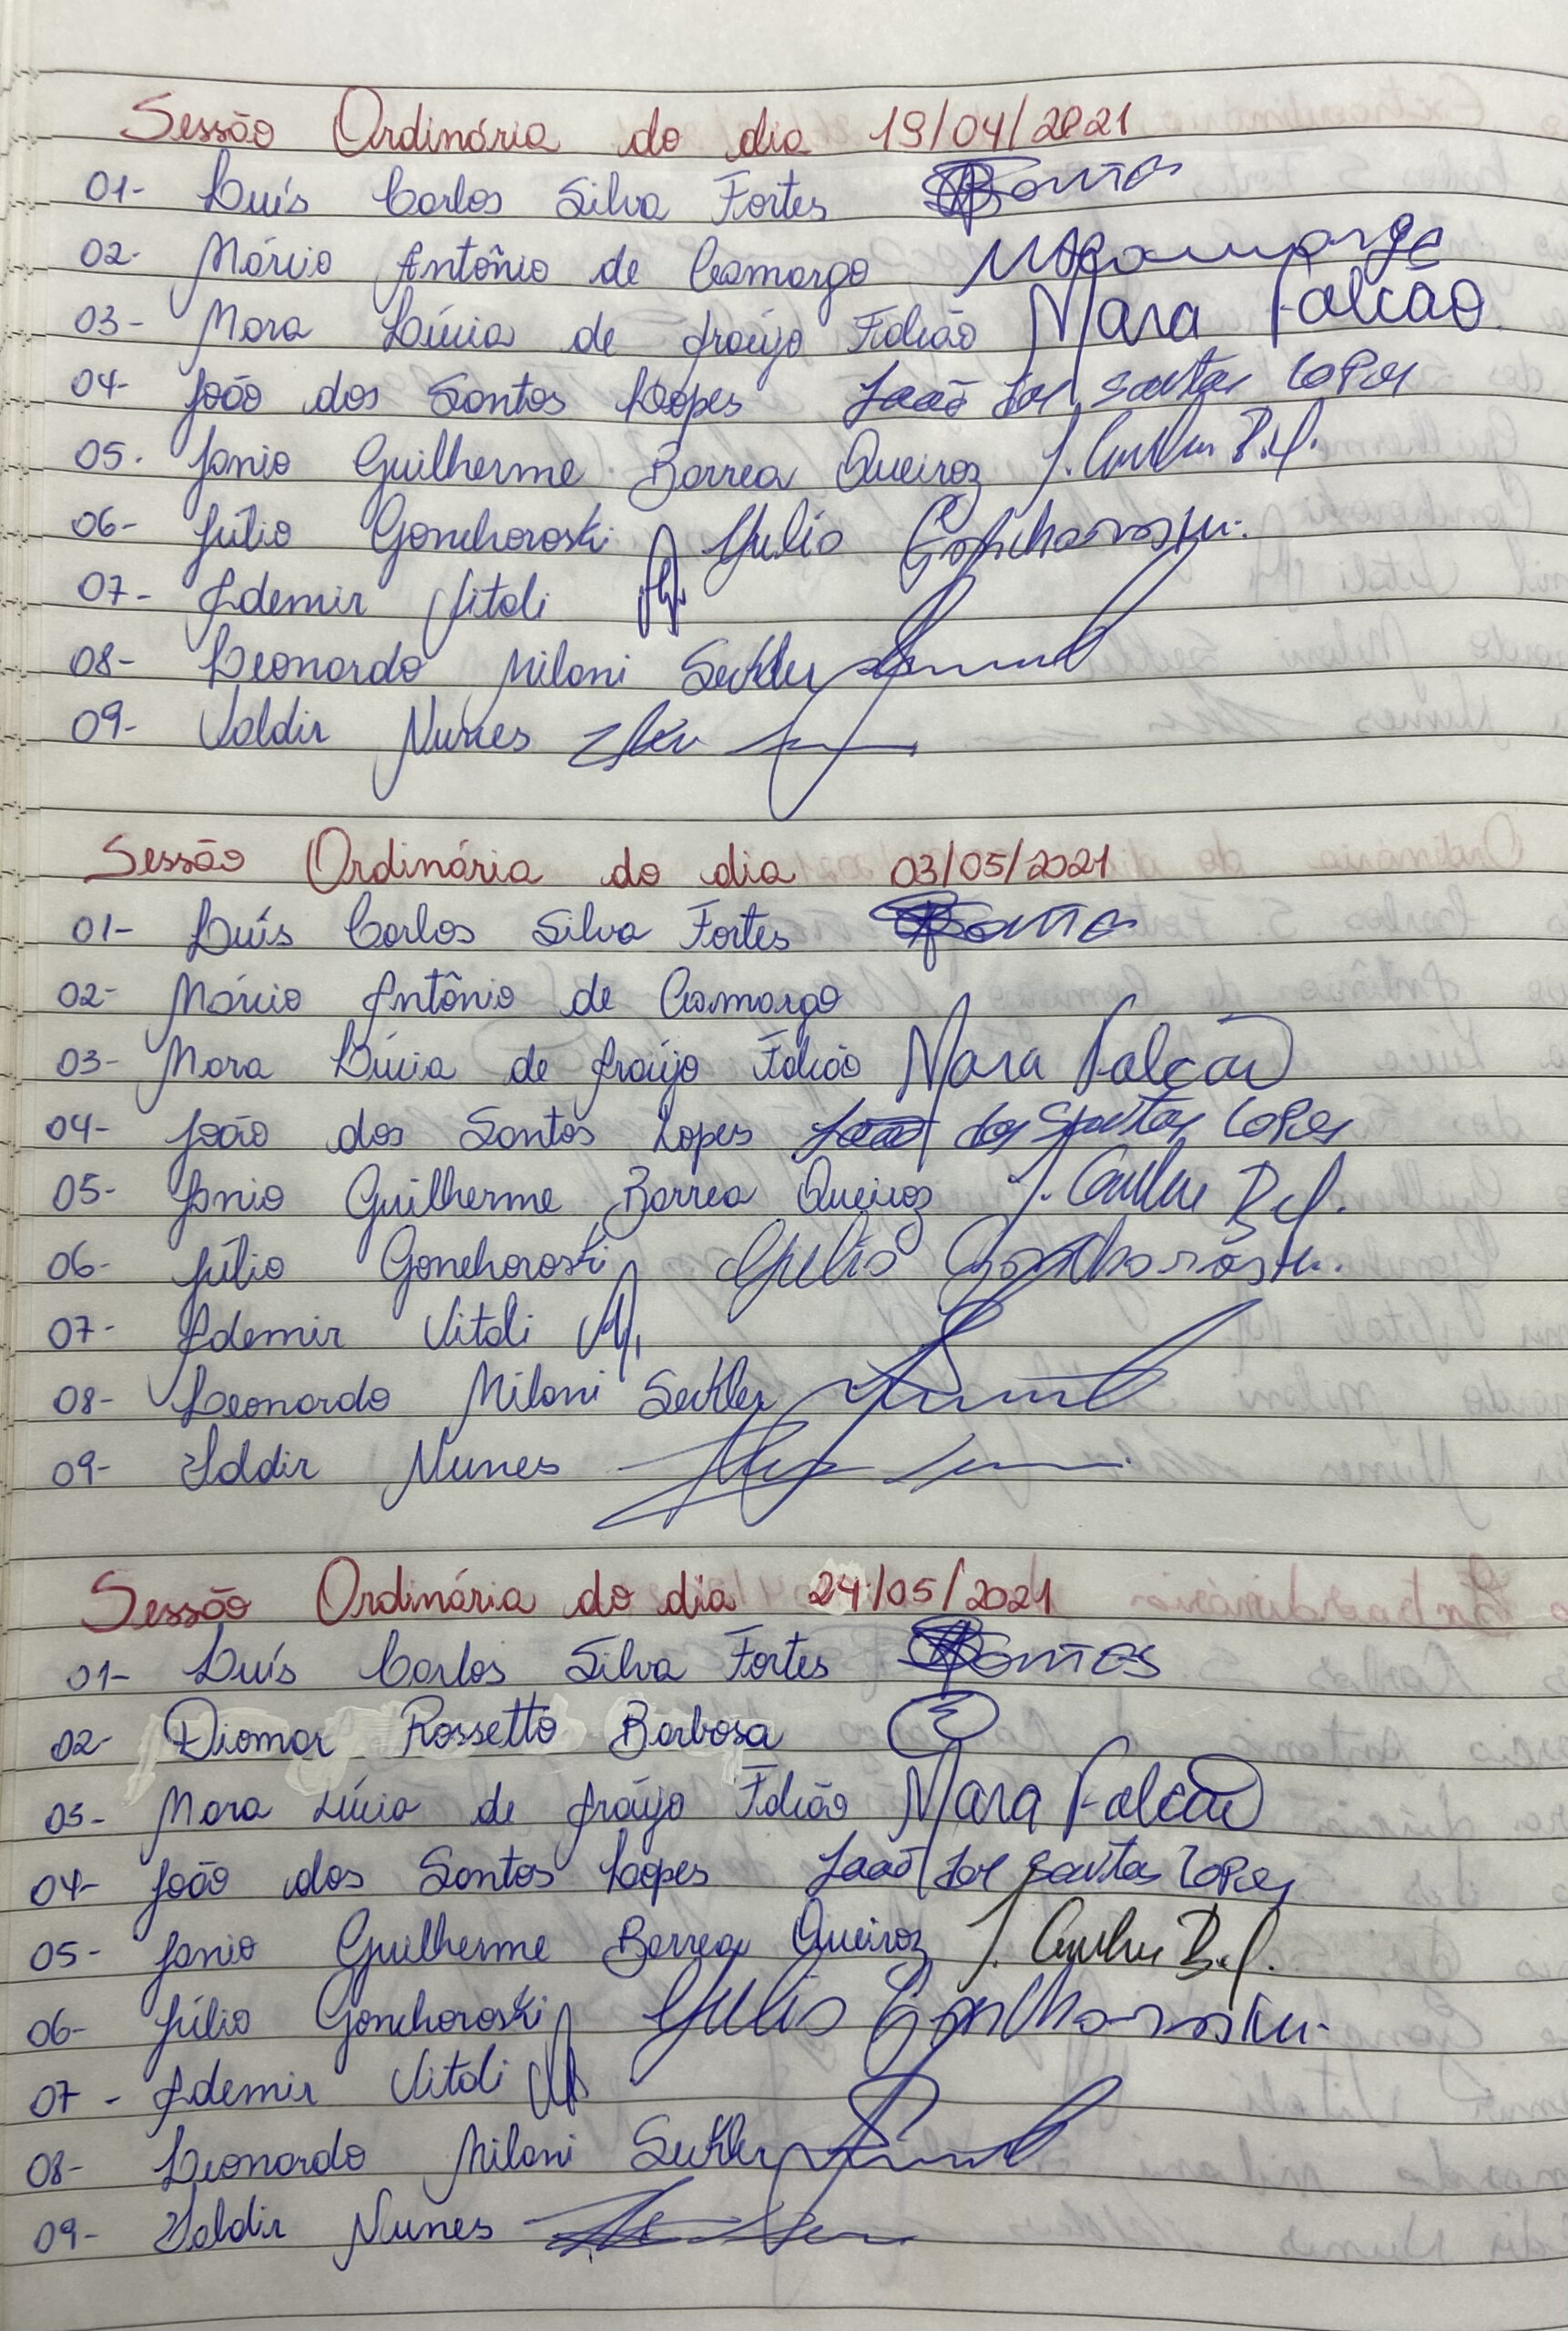 Sessão Ordinária do dia 19/04/2021
01- Luís Carlos Silva Fortes
02- Márcio Antônio de Camargo
03- Mara Lúcia de Araújo Falcão Mara Falcão
04- João dos Santos Lopes João dos Santos Lopes
05- Janio Guilherme Borrea Queiroz
06- Júlio Gonchoroski Julio Gonchoroski
07- Ademir Vitali
08- Leonardo Milani Seckler
09- Valdir Nunes
Sessão Ordinária do dia 03/05/2021
01- Luís Carlos Silva Fortes
02- Márcio Antônio de Camargo
03- Mara Lúcia de Araújo Falcão Mara Falcão
04- João dos Santos Lopes João dos Santos Lopes
05- Janio Guilherme Borrea Queiroz
06- Júlio Gonchoroski Julio Gonchoroski
07- Ademir Vitali
08- Leonardo Milani Seckler
09- Valdir Nunes
Sessão Ordinária do dia 24/05/2021
01- Luís Carlos Silva Fortes
02- Diomar Rossetto Barbosa
03- Mara Lúcia de Araújo Falcão Mara Falcão
04- João dos Santos Lopes João dos Santos Lopes
05- Janio Guilherme Borrea Queiroz
06- Júlio Gonchoroski Julio Gonchoroski
07- Ademir Vitali
08- Leonardo Milani Seckler
09- Valdir Nunes